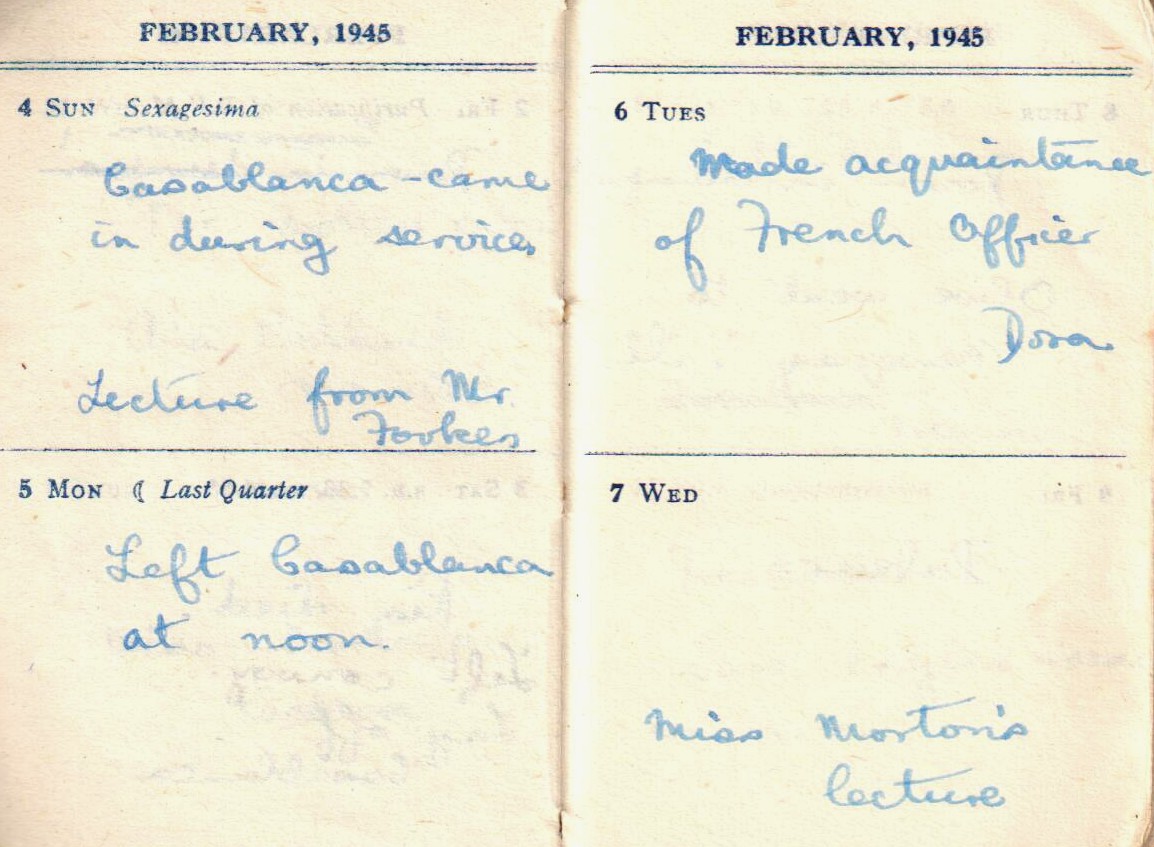 FEBRUARY, 1945
4 SUN Sexagesima
Casablanca - came
in during service,
Lecture from Mr.
5 MON ☾ Last Quarter
Left Casablanca
at noon.
FEBRUARY, 1945
6 TUES
Made acquaintance
of French Officer
Dora
7 WED
Miss Morton's
lecture